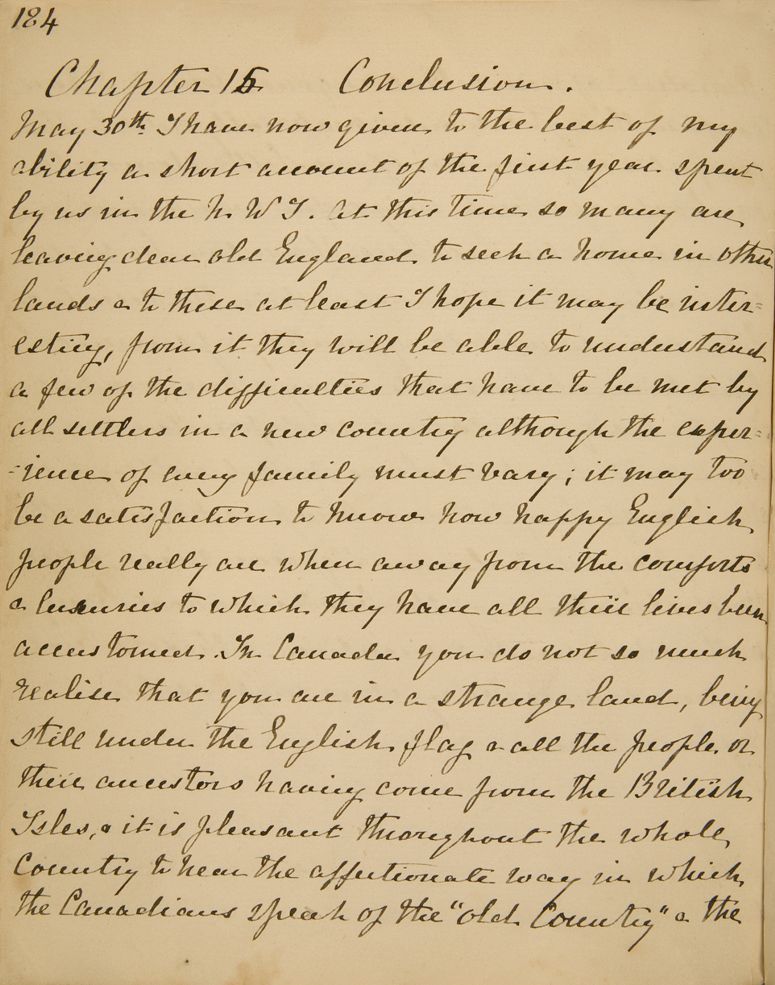 184
Chapter 15 Conclusion.
May 30th. I have now given to the best of my
ability a short account of the first year spent
by us in the N. W. T. At this time so many are
leaving dear old England to seek a home in other
lands & to these at least I hope it may be inter=
esting, from it they will be able to understand
a few of the difficulties that have to be met by
all settlers in a new country although the exper=
=ience of every family must vary; it may too
be a satisfaction to know how happy English
people really are when away from the comforts
& luxuries to which they have all their lives been
accustomed. In Canada you do not so much
realise that you are in a strange land, being
still under the English flag & all the people or
their ancestors having come from the British
Isles, & it is pleasant throughout the whole
country to hear the affectionate way in which
the Canadians speak of the "old Country" & the